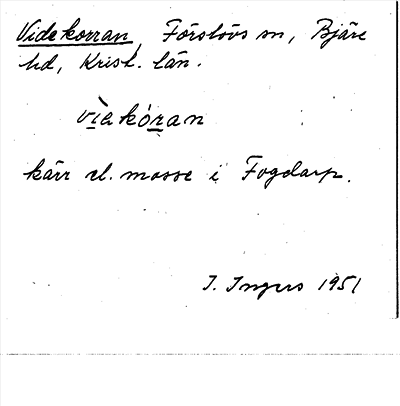 Videkorran, Förslövs sn, Bjäre
hd, Krist. län.
vìekóran
kärr el. mosse i Fogdarp.
I. Ingers 1951